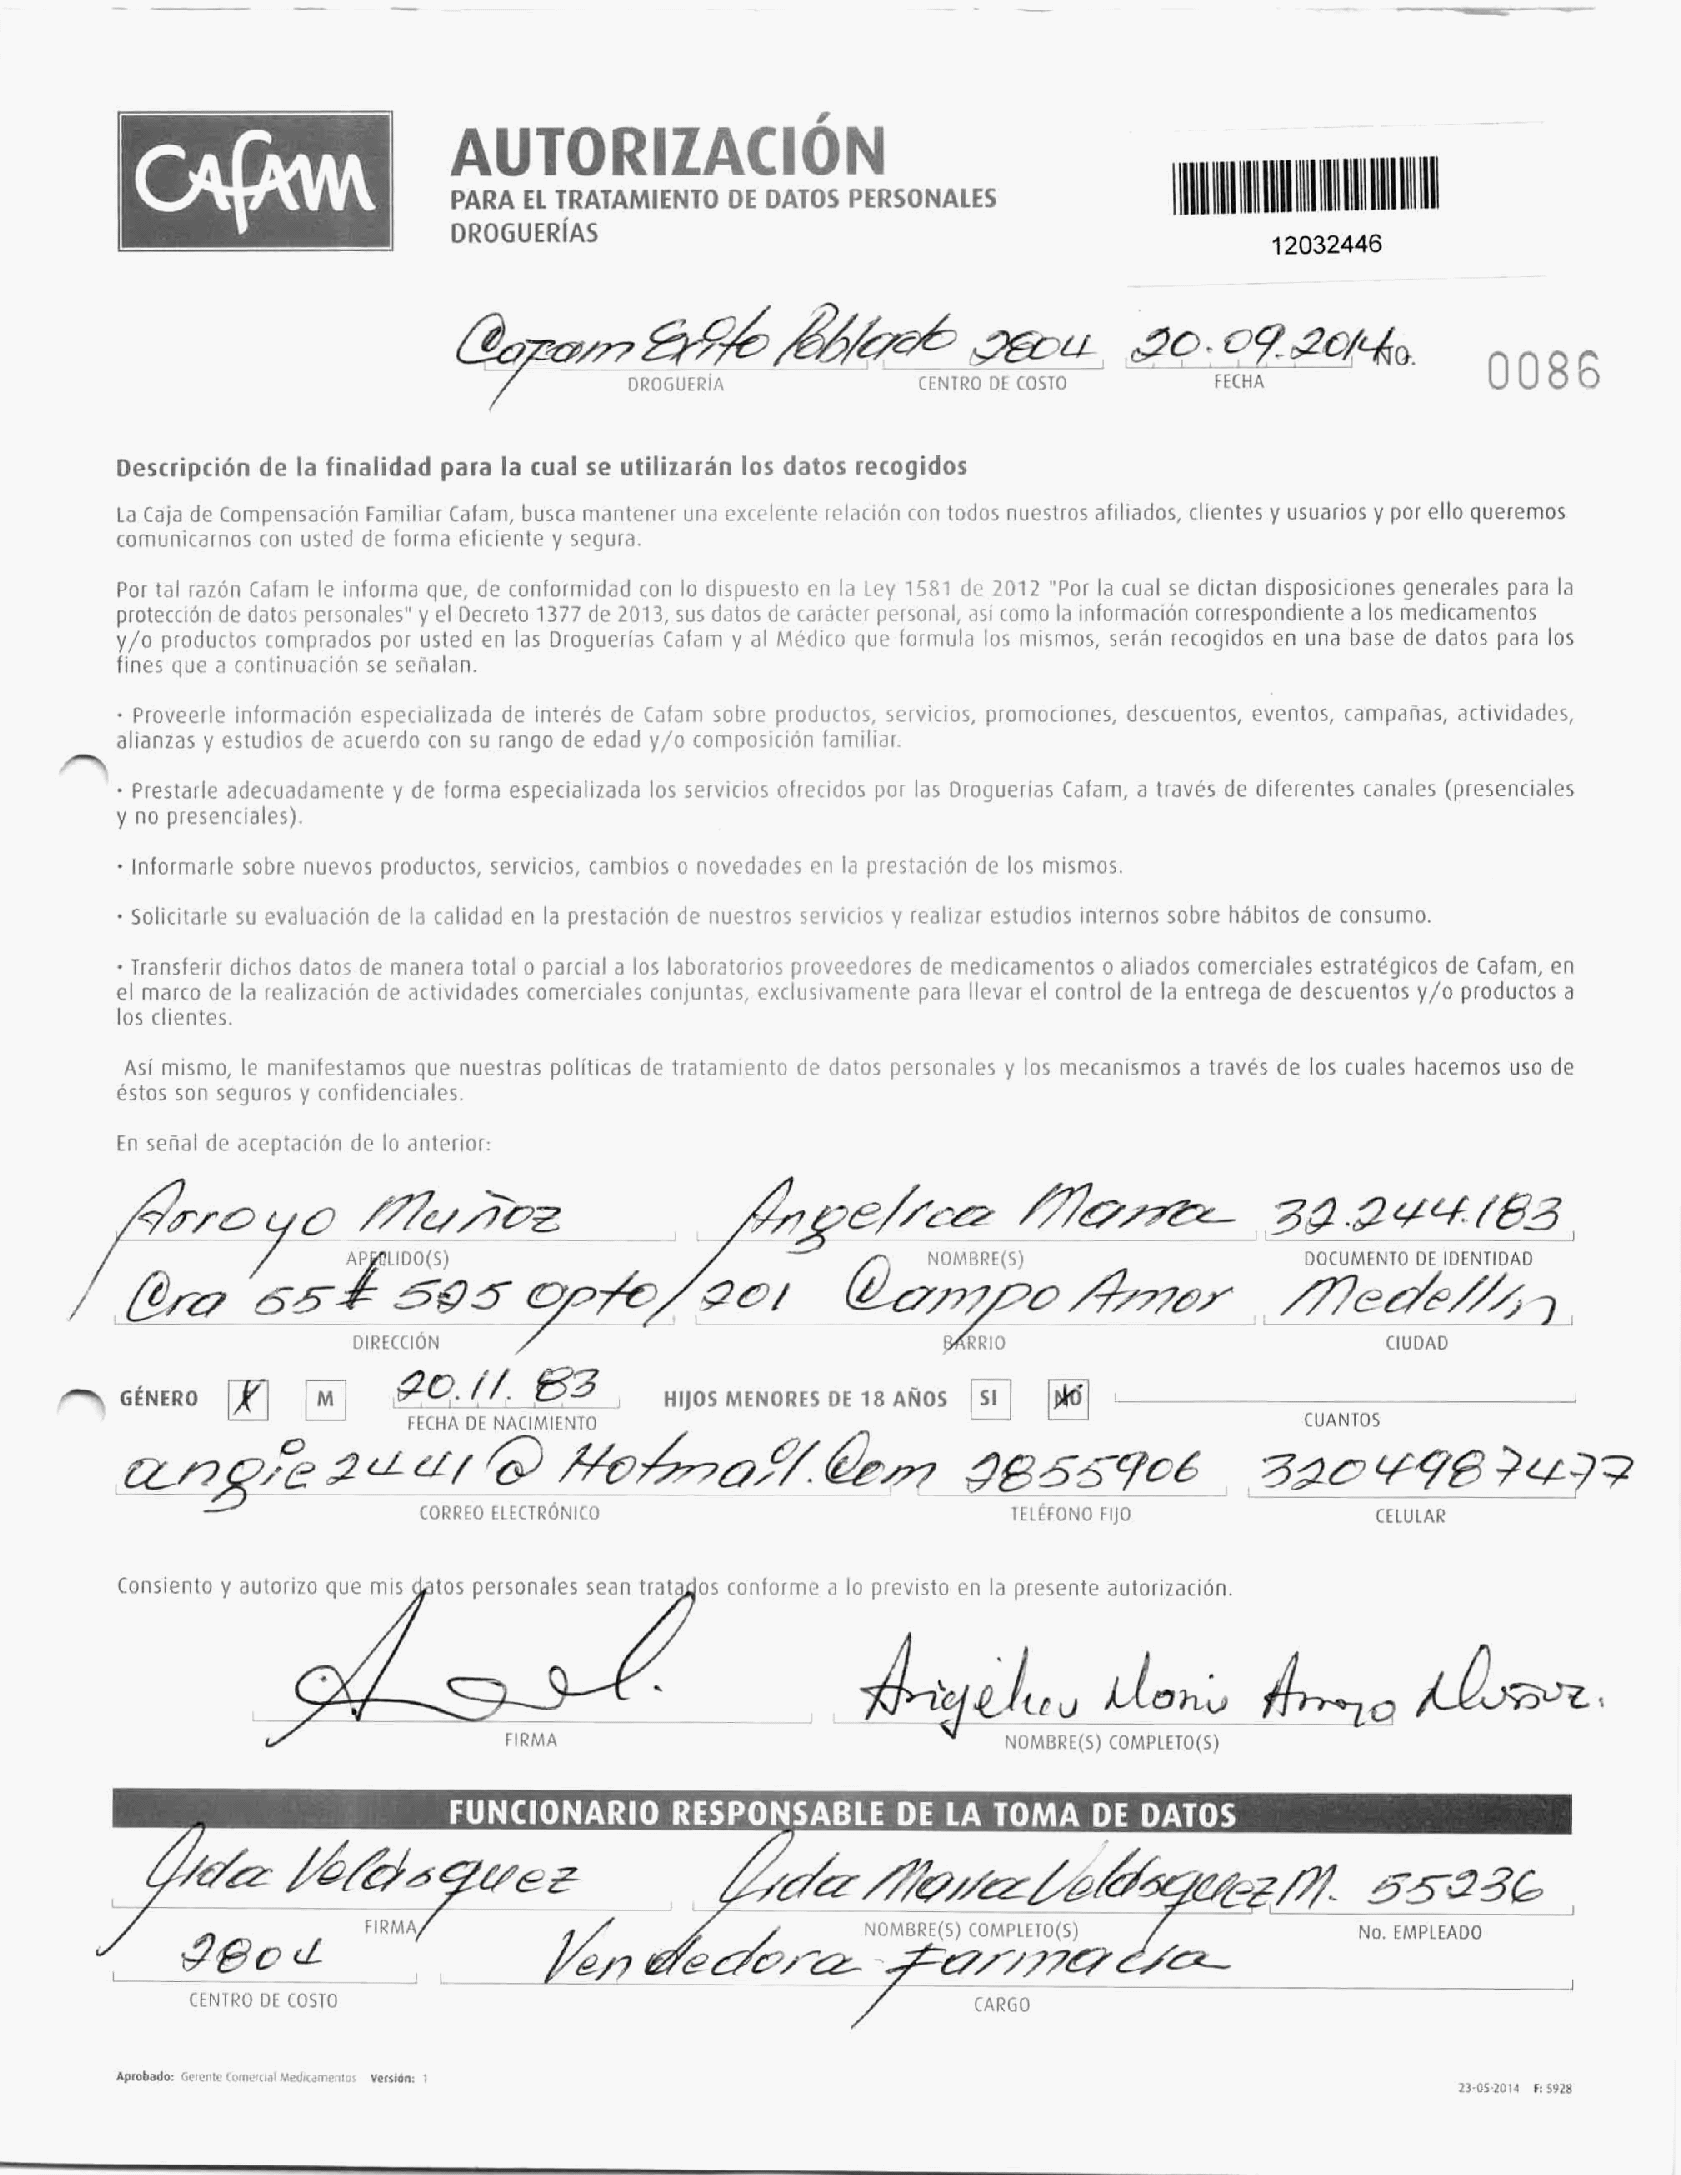 Cafam
AUTORIZACIÓN
PARA EL TRATAMIENTO DE DATOS PERSONALES
DROGUERÍAS
12032446
Cafam Exito Poblado 2804 20.09.2014 No. 0086
DROGUERÍA CENTRO DE COSTO FECHA
Descripción de la finalidad para la cual se utilizarán los datos recogidos
La Caja de Compensación Familiar Cafam, busca mantener una excelente relación con todos nuestros afiliados, clientes y usuarios y por ello queremos
comunicarnos con usted de forma eficiente y segura.
Por tal razón Cafam le informa que, de conformidad con lo dispuesto en la Ley 1581 de 2012 "Por la cual se dictan disposiciones generales para la
protección de datos personales" y el Decreto 1377 de 2013, sus datos de carácter personal, así como la información correspondiente a los medicamentos
y/o productos comprados por usted en las Droguerías Cafam y al Médico que formula los mismos, serán recogidos en una base de datos para los
fines que a continuación se señalan.
· Proveerle información especializada de interés de Cafam sobre productos, servicios, promociones, descuentos, eventos, campañas, actividades,
alianzas y estudios de acuerdo con su rango de edad y/o composición familiar.
· Prestarle adecuadamente y de forma especializada los servicios ofrecidos por las Droguerías Cafam, a través de diferentes canales (presenciales
y no presenciales).
· Informarle sobre nuevos productos, servicios, cambios o novedades en la prestación de los mismos.
· Solicitarle su evaluación de la calidad en la prestación de nuestros servicios y realizar estudios internos sobre hábitos de consumo.
· Transferir dichos datos de manera total o parcial a los laboratorios proveedores de medicamentos o aliados comerciales estratégicos de Cafam, en
el marco de la realización de actividades comerciales conjuntas, exclusivamente para llevar el control de la entrega de descuentos y/o productos a
los clientes.
Así mismo, le manifestamos que nuestras políticas de tratamiento de datos personales y los mecanismos a través de los cuales hacemos uso de
éstos son seguros y confidenciales.
En señal de aceptación de lo anterior:
Arroyo Muñoz Angelica Maria 32.244.183
APELLIDO(S) NOMBRE(S) DOCUMENTO DE IDENTIDAD
Cra 65 # 5@5 apto/201 Campo Amor Medellin
DIRECCIÓN BARRIO CIUDAD
GÉNERO X M 20.11.83 HIJOS MENORES DE 18 AÑOS SI NO
FECHA DE NACIMIENTO CUANTOS
angie2441@Hotmail.Com 2855906 3204987477
CORREO ELECTRÓNICO TELÉFONO FIJO CELULAR
Consiento y autorizo que mis datos personales sean tratados conforme a lo previsto en la presente autorización.
Angelica Maria Arroyo Munoz.
FIRMA NOMBRE(S) COMPLETO(S)
FUNCIONARIO RESPONSABLE DE LA TOMA DE DATOS
Aida Velásquez Aida Maria Velásquez M. 55236
FIRMA NOMBRE(S) COMPLETO(S) No. EMPLEADO
2804 Vendedora Farmacia
CENTRO DE COSTO CARGO
Aprobado: Gerente Comercial Medicamentos Versión: 1
23-05-2014 F: 5928